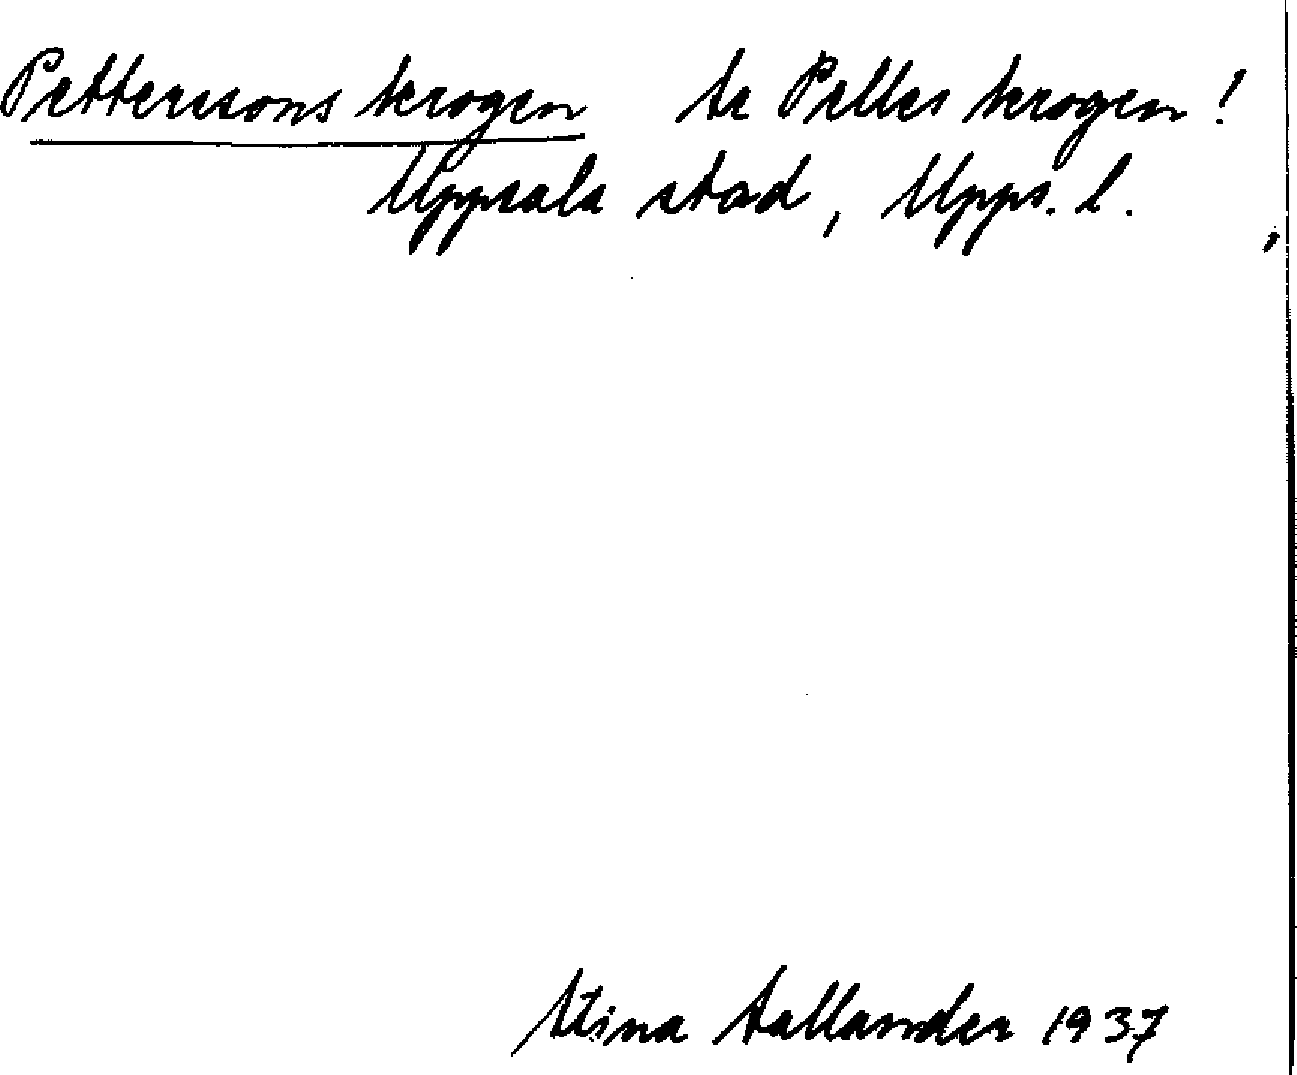 Petterssons krogen se Pelles krogen!
Uppsala stad, Upps. l.
Stina Sallander 1937